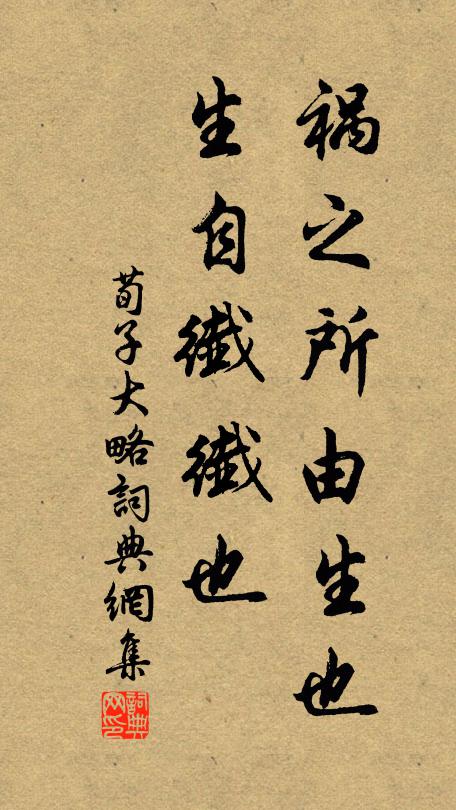 祸之所由生也
生自纎纎也
荀子大略詞典網集
詞典
网印